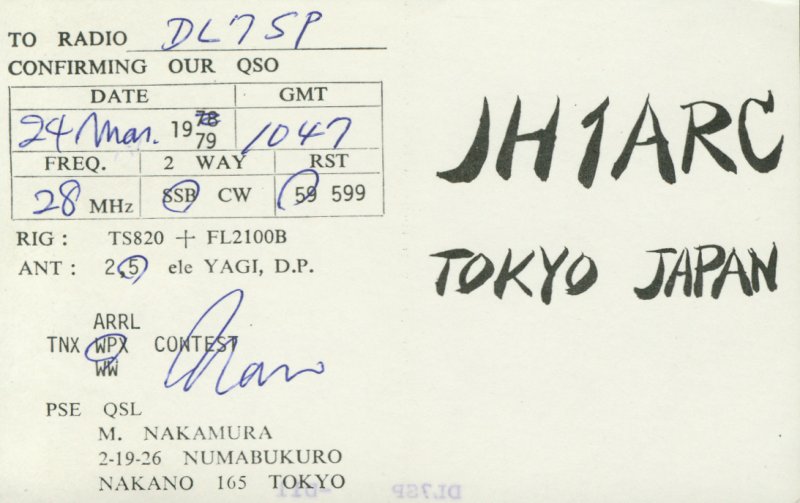 TO RADIO DL7SP
CONFIRMING OUR QSO
DATE GMT
24 Mar. 1978 79 1047
FREQ. 2 WAY RST
28 MHz SSB CW 59 599
RIG : TS820 + FL2100B
ANT : 2,5 ele YAGI, D.P.
ARRL
TNX WPX CONTEST
WW
PSE QSL
M. NAKAMURA
2-19-26 NUMABUKURO
NAKANO 165 TOKYO
JH1ARC
TOKYO JAPAN
DL7SP